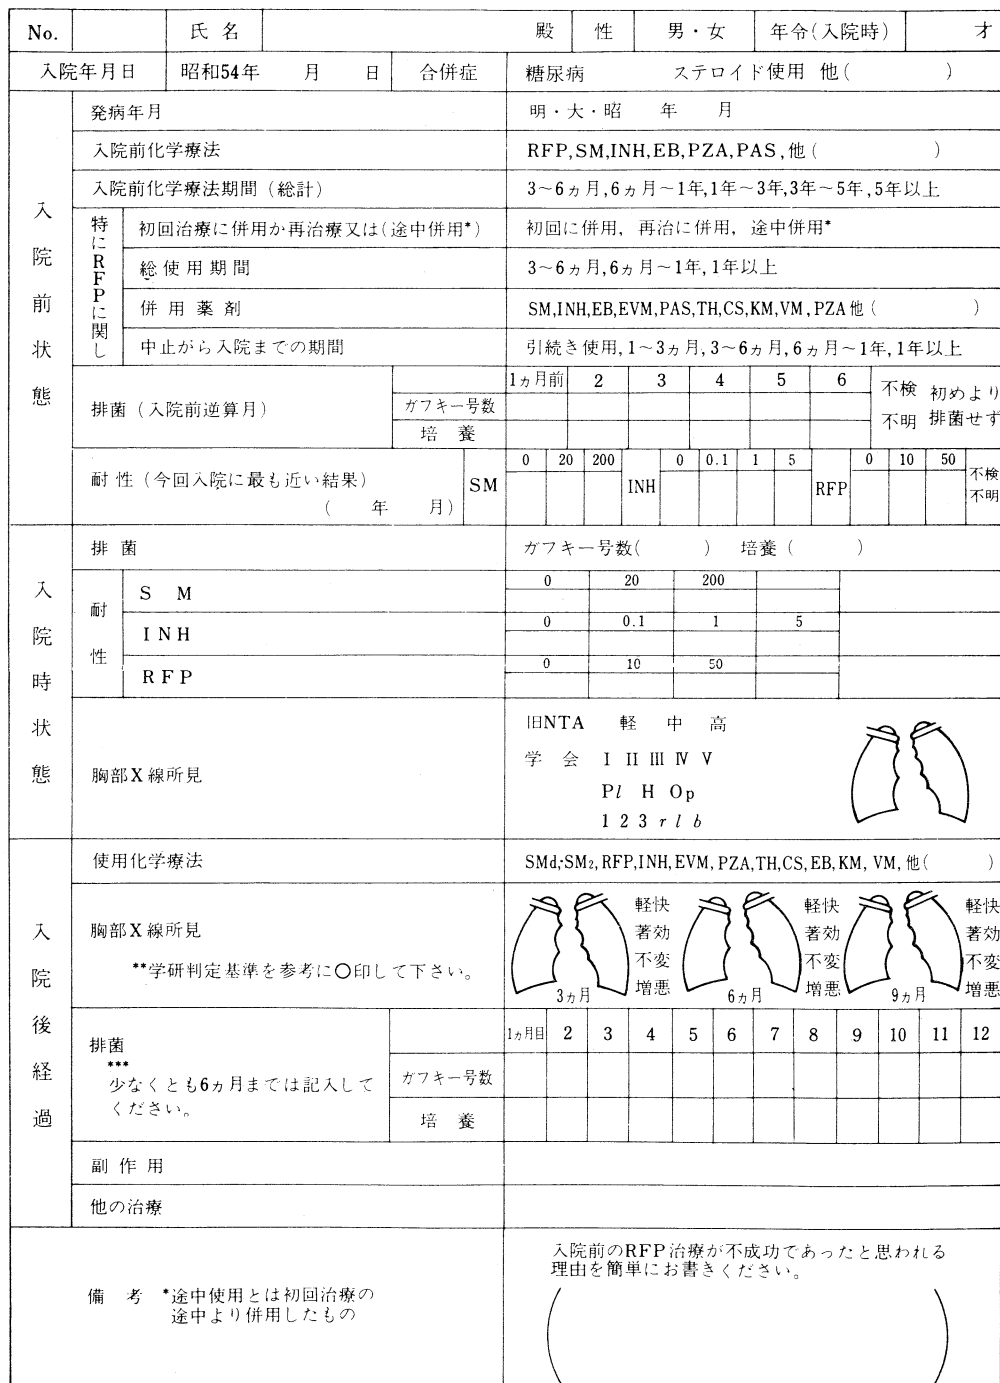 No. 氏名 殿 性 男・女 年令(入院時) 才
入院年月日 昭和54年 月 日 合併症 糖尿病 ステロイド使用 他( )
入院前状態
発病年月 明・大・昭 年 月
入院前化学療法 RFP,SM,INH,EB,PZA,PAS,他( )
入院前化学療法期間(総計) 3〜6ヵ月,6ヵ月〜1年,1年〜3年,3年〜5年,5年以上
特にRFPに関し
初回治療に併用か再治療又は(途中併用*) 初回に併用, 再治に併用, 途中併用*
総使用期間 3〜6ヵ月,6ヵ月〜1年,1年以上
併用薬剤 SM,INH,EB,EVM,PAS,TH,CS,KM,VM,PZA他( )
中止がら入院までの期間 引続き使用,1〜3ヵ月,3〜6ヵ月,6ヵ月〜1年,1年以上
排菌(入院前逆算月) 1ヵ月前 2 3 4 5 6 不検 初めより
ガフキー号数 不明 排菌せず
培養
耐性(今回入院に最も近い結果) SM 0 20 200 INH 0 0.1 1 5 RFP 0 10 50 不検
( 年 月) 不明
入院時状態
排菌 ガフキー号数( ) 培養( )
耐性
SM 0 20 200
INH 0 0.1 1 5
RFP 0 10 50
胸部X線所見
旧NTA 軽 中 高
学会 I II III IV V
Pl H Op
1 2 3 r l b
入院後経過
使用化学療法 SMd,SM2,RFP,INH,EVM,PZA,TH,CS,EB,KM,VM,他( )
胸部X線所見
**学研判定基準を参考に○印して下さい。
3ヵ月 軽快 著効 不変 増悪
6ヵ月 軽快 著効 不変 増悪
9ヵ月 軽快 著効 不変 増悪
排菌 1ヵ月目 2 3 4 5 6 7 8 9 10 11 12
***
少なくとも6ヵ月までは記入して
ください。
ガフキー号数
培養
副作用
他の治療
備考 *途中使用とは初回治療の
途中より併用したもの
入院前のRFP治療が不成功であったと思われる
理由を簡単にお書きください。
( )